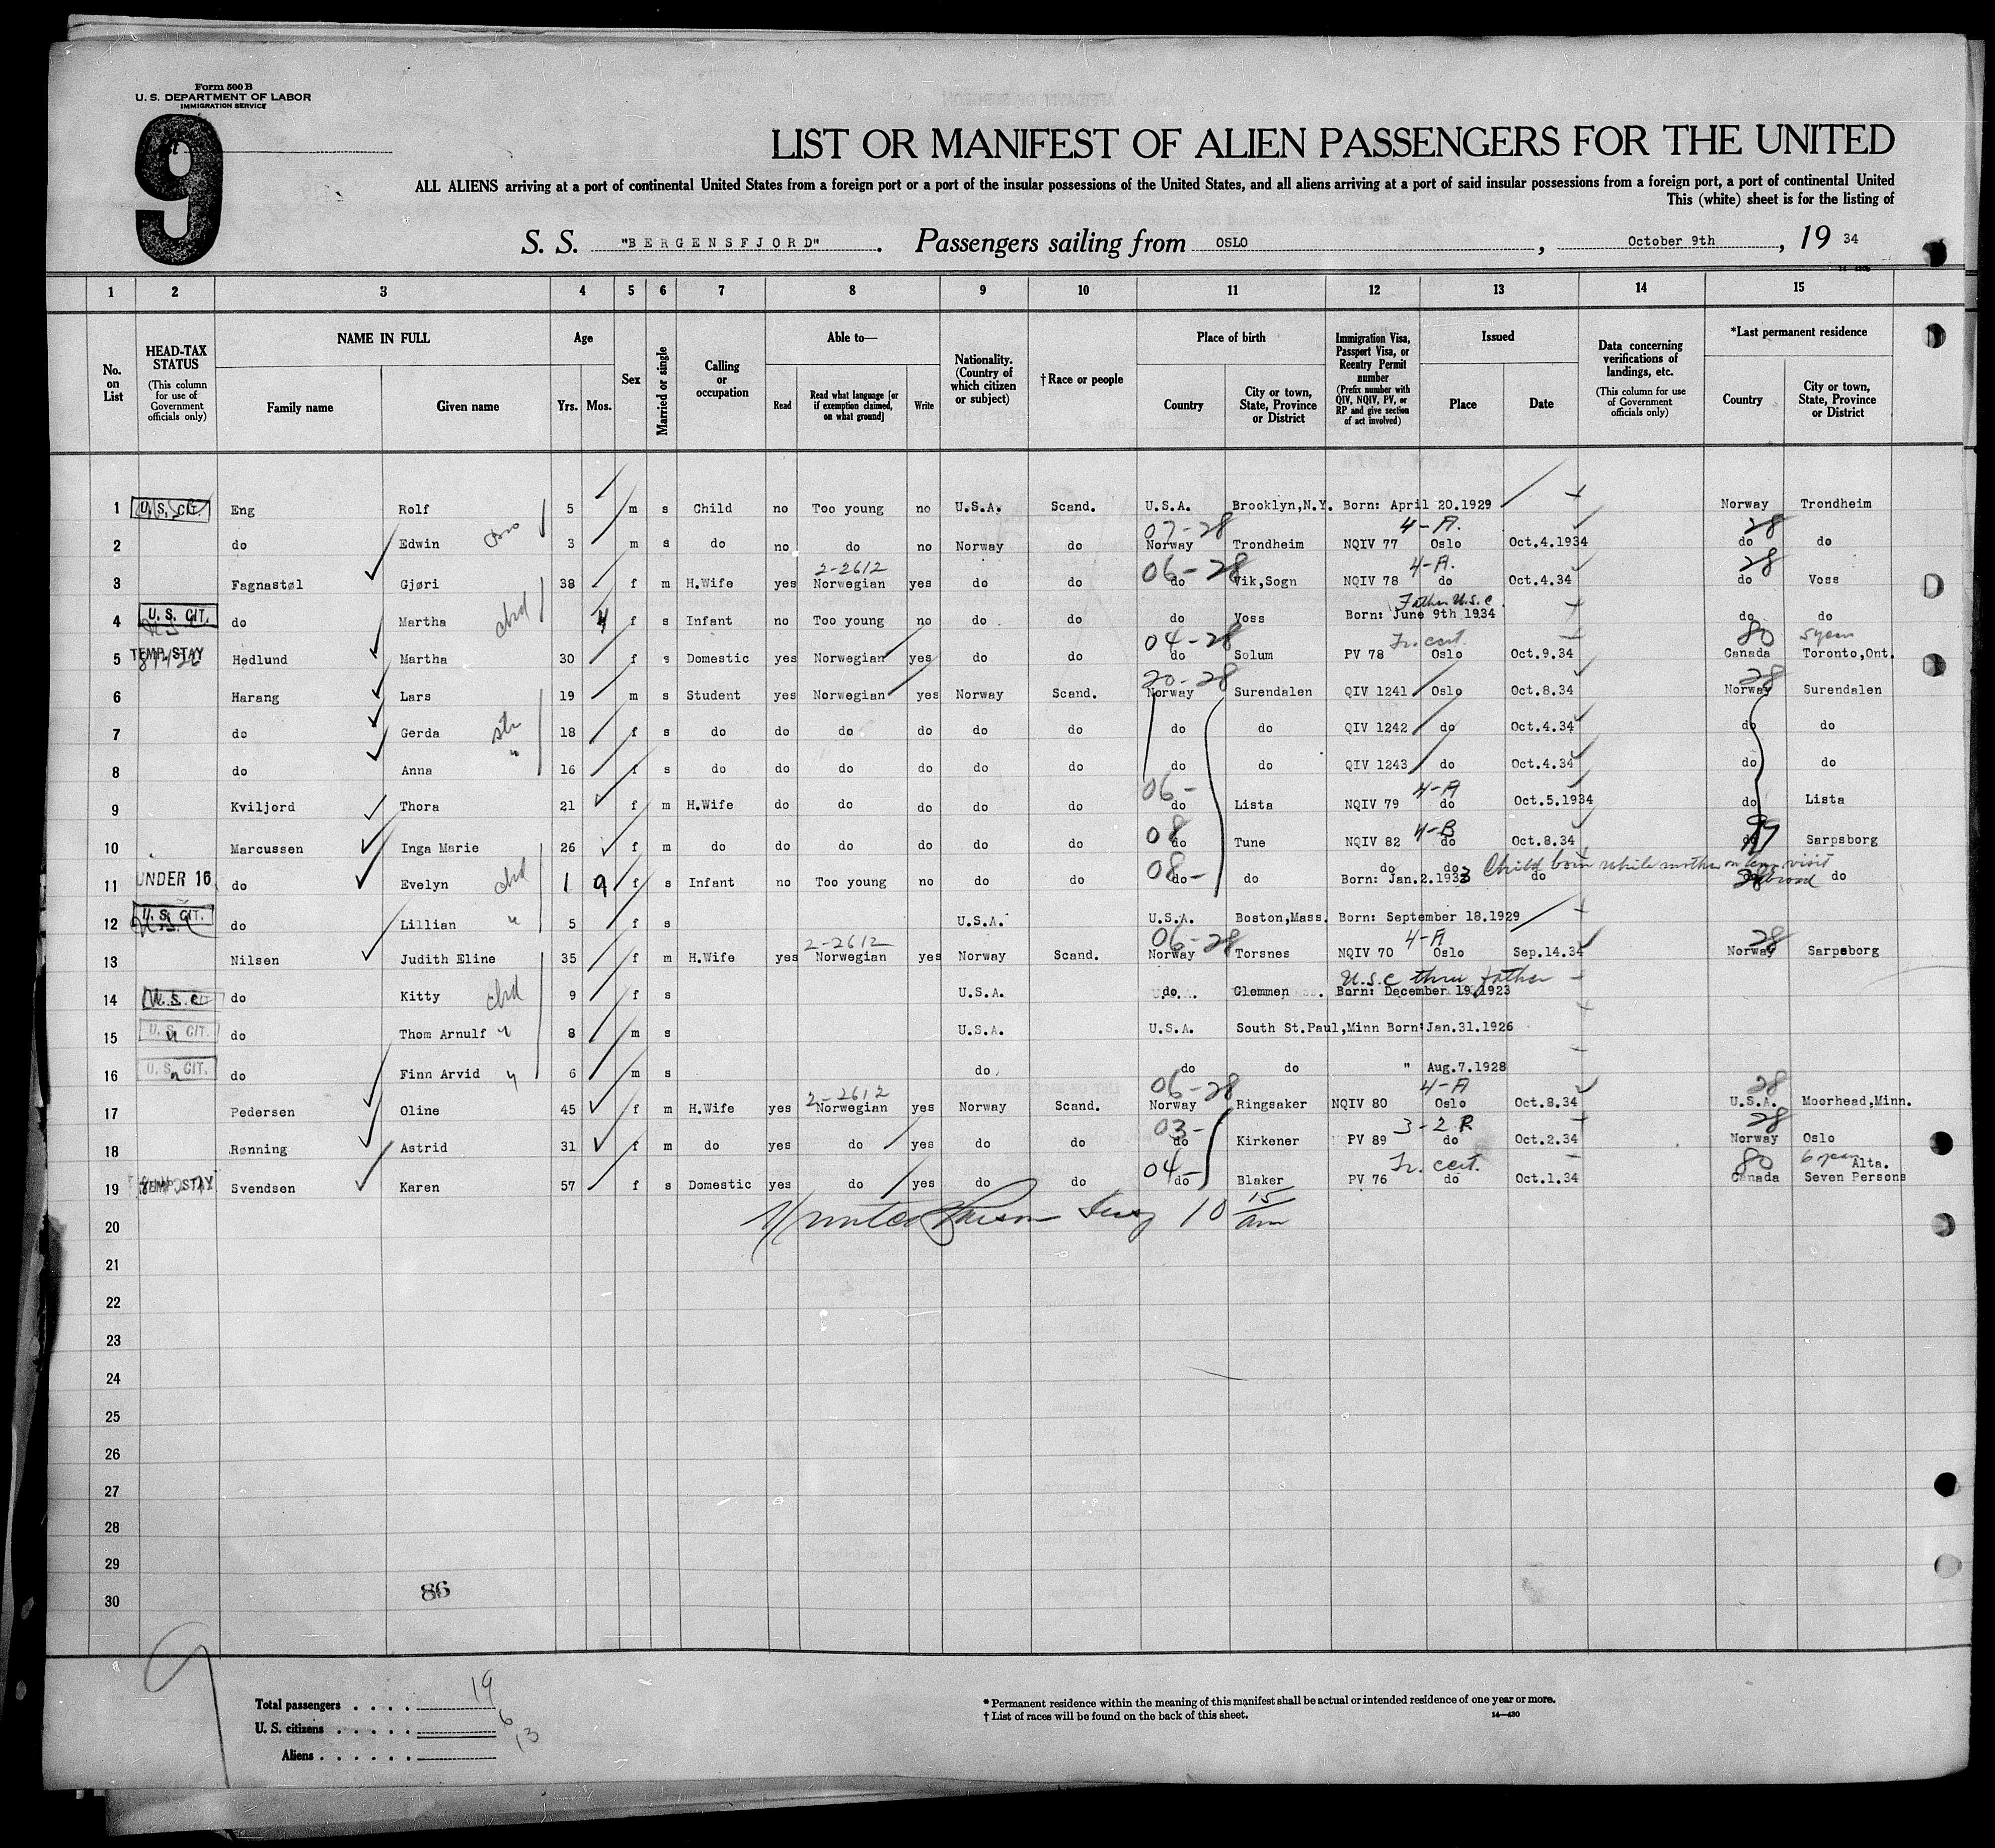 Form 500 B
U. S. DEPARTMENT OF LABOR
IMMIGRATION SERVICE
9
LIST OR MANIFEST OF ALIEN PASSENGERS FOR THE UNITED
ALL ALIENS arriving at a port of continental United States from a foreign port or a port of the insular possessions of the United States, and all aliens arriving at a port of said insular possessions from a foreign port, a port of continental United
This (white) sheet is for the listing of
S. S. "BERGENSFJORD". Passengers sailing from OSLO, October 9th, 19 34
1 2 3 4 5 6 7 8 9 10 11 12 13 14 15
No. on List
HEAD-TAX STATUS (This column for use of Government officials only)
NAME IN FULL Family name Given name
Age Yrs. Mos.
Sex
Married or single
Calling or occupation
Able to— Read Read what language [or if exemption claimed, on what ground] Write
Nationality. (Country of which citizen or subject)
† Race or people
Place of birth Country City or town, State, Province or District
Immigration Visa, Passport Visa, or Reentry Permit number (Prefix number with QIV, NQIV, PV, or RP and give section of act involved)
Issued Place Date
Data concerning verifications of landings, etc. (This column for use of Government officials only)
*Last permanent residence Country City or town, State, Province or District
1 U. S. CIT. Eng Rolf 5 m s Child no Too young no U.S.A. Scand. U.S.A. Brooklyn,N.Y. Born: April 20.1929 Norway Trondheim
07-28 4-A. 28
2 do Edwin 3 m s do no do no Norway do Norway Trondheim NQIV 77 Oslo Oct.4.1934 do do
2-2612 06-28 4-A. 28
3 Fagnastøl Gjøri 38 f m H.Wife yes Norwegian yes do do do Vik,Sogn NQIV 78 do Oct.4.34 do Voss
Father U.S.C.
4 U. S. CIT. do Martha chd 4 f s Infant no Too young no do do do Voss Born: June 9th 1934 do do
04-28 Tr. cert. 80 5 years
5 TEMP. STAY Hedlund Martha 30 f s Domestic yes Norwegian yes do do do Solum PV 78 Oslo Oct.9.34 Canada Toronto,Ont.
20-28 28
6 Harang Lars 19 m s Student yes Norwegian yes Norway Scand. Norway Surendalen QIV 1241 Oslo Oct.8.34 Norway Surendalen
7 do Gerda 18 f s do do do do do do do do QIV 1242 do Oct.4.34 do do
8 do Anna 16 f s do do do do do do do do QIV 1243 do Oct.4.34 do do
06- 4-A
9 Kviljord Thora 21 f m H.Wife do do do do do do Lista NQIV 79 do Oct.5.1934 do Lista
08 4-B
10 Marcussen Inga Marie 26 f m do do do do do do do Tune NQIV 82 do Oct.8.34 do Sarpsborg
08- do do Child born while mother on temp visit abroad
11 UNDER 16 do Evelyn chd 1 9 f s Infant no Too young no do do do do Born: Jan.2.1933 do do do
12 U. S. CIT. do Lillian " 5 f s U.S.A. U.S.A. Boston,Mass. Born: September 18.1929
2-2612 06-28 4-A 28
13 Nilsen Judith Eline 35 f m H.Wife yes Norwegian yes Norway Scand. Norway Torsnes NQIV 70 Oslo Sep.14.34 Norway Sarpsborg
U.S.C thru father
14 U. S. C do Kitty chd 9 f s U.S.A. do Glemmen Born: December 19.1923
15 U. S. CIT. do Thom Arnulf " 8 m s U.S.A. U.S.A. South St.Paul,Minn Born:Jan.31.1926
16 U. S. CIT. do Finn Arvid " 6 m s do do do " Aug.7.1928
2-2612 06-28 4-A 28
17 Pedersen Oline 45 f m H.Wife yes Norwegian yes Norway Scand. Norway Ringsaker NQIV 80 Oslo Oct.8.34 U.S.A. Moorhead,Minn.
03- 3-2 R 28
18 Rønning Astrid 31 f m do yes do yes do do do Kirkener PV 89 do Oct.2.34 Norway Oslo
04- Tr. cert. 80 6 years Alta.
19 TEMP. STAY Svendsen Karen 57 f s Domestic yes do yes do do do Blaker PV 76 do Oct.1.34 Canada Seven Persons
10 15 am
20
21
22
23
24
25
26
27
28
29
30
86
9
Total passengers . . . . 19
U. S. citizens . . . . . 6
Aliens . . . . . . 13
* Permanent residence within the meaning of this manifest shall be actual or intended residence of one year or more.
† List of races will be found on the back of this sheet. 14—430